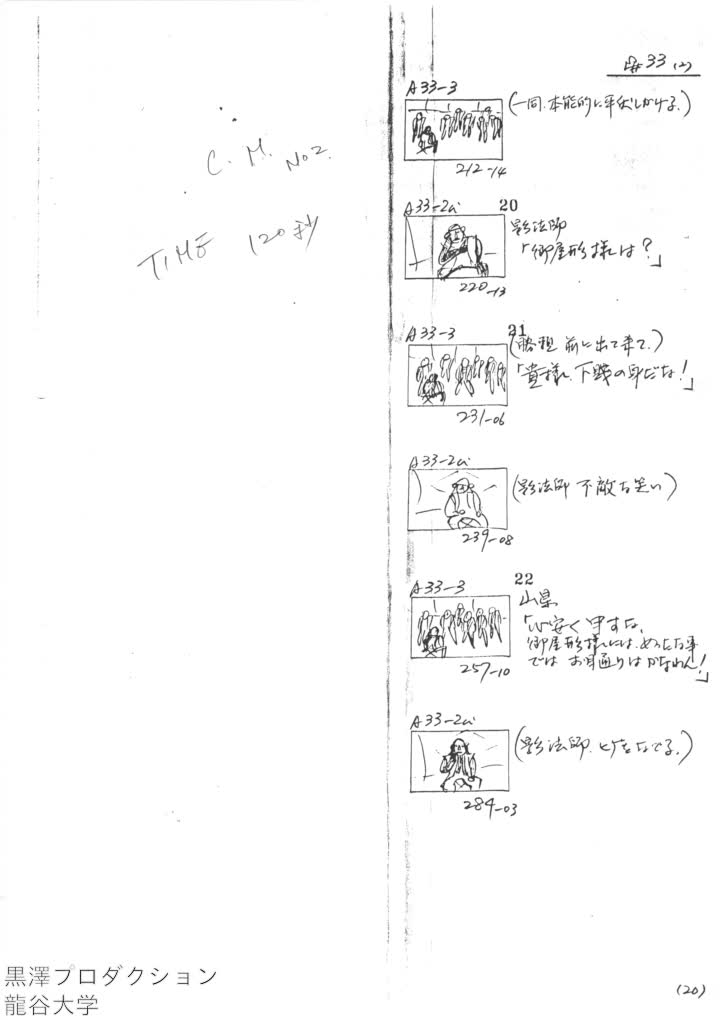 C. M. No2.
TIME 120秒
#33 (2)
A33-3
(一同、本能的に平伏しかける。)
212-14
A33-2a'
20
影法師
「御屋形様は?」
220-13
A33-3
21
(勝頼 前に出て来て。)
「貴様、下賎の身だな!」
231-06
A33-2a'
(影法師 不敵な笑い)
239-08
A33-3
22
山県
「心安く申すな、
御屋形様には、めったな事
では お目通りはかなわん!」
257-10
A33-2a'
(影法師、ヒゲをなでる。)
284-03
(20)
黒澤プロダクション
龍谷大学